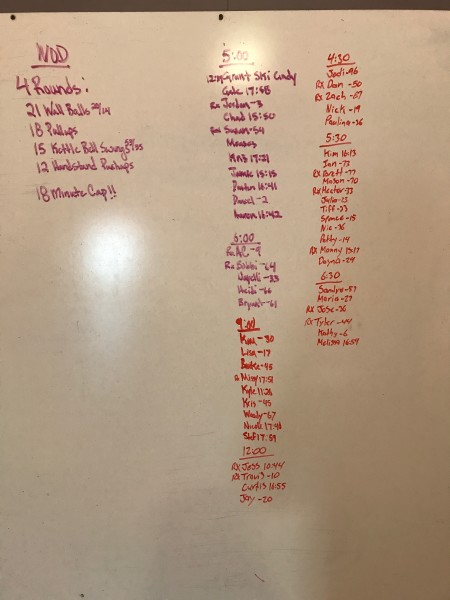 WOD
4 Rounds:
21 Wall Balls 20/14
18 Pullups
15 Kettle Bell Swings 53/35
12 Handstand Pushups
18 Minute Cap!!
5:00
Grant Stsi Candy
Gabe 17:58
Rx Jordan-3
Chad 15:50
Rx Susan-54
Kris 17:21
Jamie 15:15
Dustin 16:41
Daniel-2
Aaron 16:42
6:00
Rx AC-9
Rx Bobbi-64
Heidi-66
Bryant-61
9:00
Kim-30
Lisa-17
Rx Missy 17:51
Kyle 11:26
Kris-45
Wendy-67
Nicole 17:41
Stef 17:59
12:00
RX Jess 10:44
RX Travis-10
Curtis 16:55
Jay-20
4:30
Jodi-96
RX Dan-50
RX Zach-67
Nick-19
Paulina-36
5:30
Kim 16:13
Jan-73
RX Brett-77
Mason-70
RX Hector-33
Julia-23
Tiff-33
Spence-15
Nic-36
Patty-14
RX Manny 15:17
Dayna-29
6:30
Sandra-57
Maria-27
RX Jose-36
RX Tyler-44
Kathy-6
Melissa 16:57